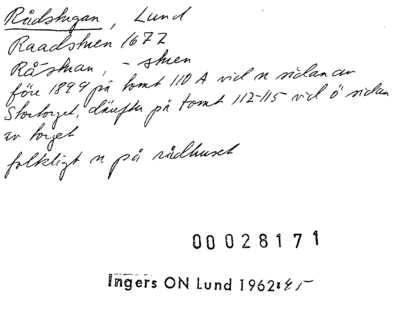 Rådstugan, Lund
Raadstuen 1677
Rå-stuan, -stuen
före 1899 på tomt 110 A vid n sidan av
Stortorget, därefter på tomt 112-115 vid ö sidan
av torget
folkligt n på rådhuset
00028171
Ingers ON Lund 1962:45